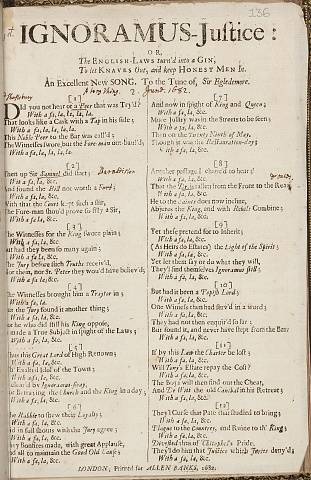 136
IGNORAMUS-Justice:
OR,
The ENGLISH-LAWS turn'd into a GIN,
To let KNAVES Out, and keep HONEST MEN In.
An Excellent New SONG. To the Tune of, Sir Egledemore.
2. June. 1682.
[1]
Did you not hear of a Peer that was Try'd?
With a fa, la, la, la, la.
That looks like a Cask with a Tap in his side;
With a fa, la, la, la, la.
This Noble Peer to the Bar was call'd;
The Witnesses sworn, but the Fore-man
With a fa, la, la, la, la.
[2]
Then up Sir Samuel did start;
With a fa, la, &c.
And found the Bill not worth a
With a fa, la, &c.
With that the Court
The Fore-man shou'd prove so
With a fa, la, &c.
[3]
The Witnesses for the King swore plain;
With a fa, la, &c.
had they been so many again;
With a fa, la, &c.
The Jury before such Truths receiv'd,
nor Sr. Peter they wou'd have believ'd,
With a fa, la, &c.
[4]
The Witnesses brought him a Traytor in
With a fa, la.
the Jury found it another thing;
With a fa, la, &c.
he who did still his King oppose,
made a True Subject in spight of the Laws;
With a fa, la, &c.
[5]
Thus this Great Lord of High Renown;
With a fa, la, &c.
Exalted Idol of the Town;
With a fa, la, &c.
clear'd by Ignoramus-sway,
for Betraying the Church and the King in a day,
With a fa, la, &c.
[6]
the Rabble to shew their Loyalty;
With a fa, la, &c.
in full shouts with the Jury agree;
With a fa, la, &c.
Bonfires made, with great Applause,
and all to maintain the Good Old Cause;
With a fa, la, &c.
[7]
And now in spight of King and Queen;
With a fa, la, &c.
More Jollity was in the Streets to be seen;
With a fa, la, &c.
Then on the Twenty Ninth of May,
Though it was the Restauration-day;
With a fa, la, &c.
[8]
Another passage I chanc'd to hear;
With a fa, la, &c.
from the Front to the Rear;
With a fa, la, &c.
He to the does now incline,
Abjures the King, and with Rebels Combine;
With a fa, la, &c.
[9]
Yet these pretend for to inherit;
With a fa, la, &c.
(As Heirs do Estates) the Light of the Spirit;
With a fa, la, &c.
Yet let them say or do what they will,
They'l find themselves Ignoramus still;
With a fa, la, &c.
[10]
But had it been a Popish Lord;
With a fa, la, &c.
One Witness then had serv'd in a word;
With a fa, la, &c.
They had not then enquir'd so far;
But found it, and never have stept from the Barr
With a fa, la, &c.
[11]
If by this Law the Charter be lost;
With a fa, la, &c.
Will Tony's Estate repay the Cost?
With a fa, la, &c.
The Boys will then find out the Cheat,
And the old Conclusion in his Retreat;
With a fa, la, &c.
[12]
They'l Curse that Pate that studied to bring;
With a fa, la, &c.
Plague to the Countrey, and Ruine to th' King;
With a fa, la, &c.
They'l do him that Justice which Juries deny'd
With a fa, la, &c.
LONDON, Printed for ALLEN BANKS, 1682.